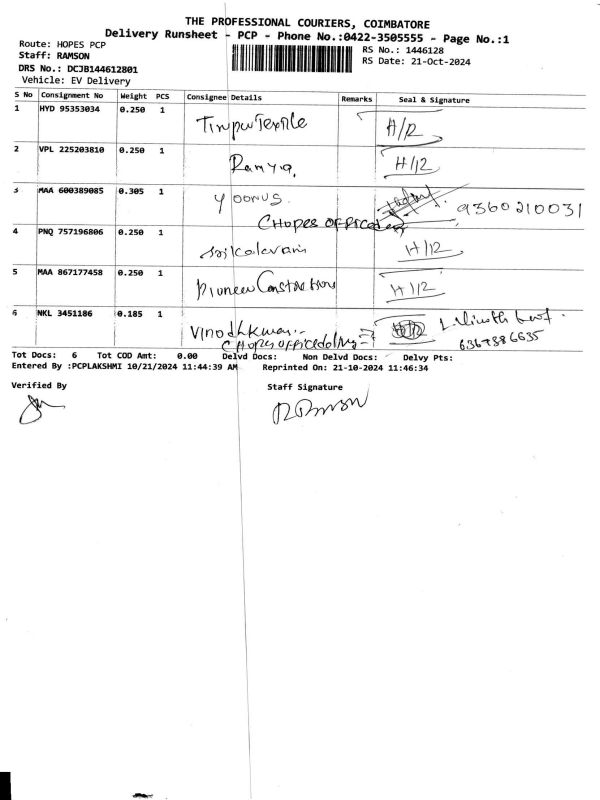 THE PROFESSIONAL COURIERS, COIMBATORE
Delivery Runsheet - PCP - Phone No.:0422-3505555 - Page No.:1
Route: HOPES PCP
RS No.: 1446128
Staff: RAMSON
RS Date: 21-Oct-2024
DRS No.: DCJB144612801
Vehicle: EV Delivery
S No Consignment No Weight PCS Consignee Details Remarks Seal & Signature
1 HYD 95353034 0.250 1 H/12
2 VPL 225203810 0.250 1 Ramya. H/12
3 MAA 600389085 0.305 1 Yoonus. 9360210031
4 PNQ 757196806 0.250 1 H/12
5 MAA 867177458 0.250 1 Pioneer Constructions H/12
6 NKL 3451186 0.185 1 Vinodhkumar
6367886635
Tot Docs: 6 Tot COD Amt: 0.00 Delvd Docs: Non Delvd Docs: Delvy Pts:
Entered By :PCPLAKSHMI 10/21/2024 11:44:39 AM Reprinted On: 21-10-2024 11:46:34
Verified By Staff Signature